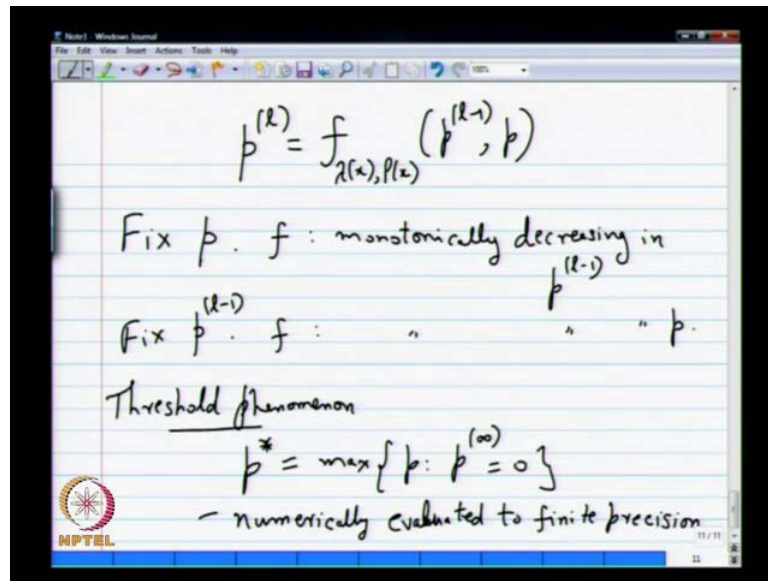 Note1 - Windows Journal
File Edit View Insert Actions Tools Help
100%
p^(l) = f_λ(x),ρ(x) (p^(l-1), p)
Fix p . f : monotonically decreasing in p^(l-1)
Fix p^(l-1) . f : " " " p.
Threshold phenomenon
p* = max{ p: p^(∞) = 0 }
- numerically evaluated to finite precision
NPTEL
11/11
11